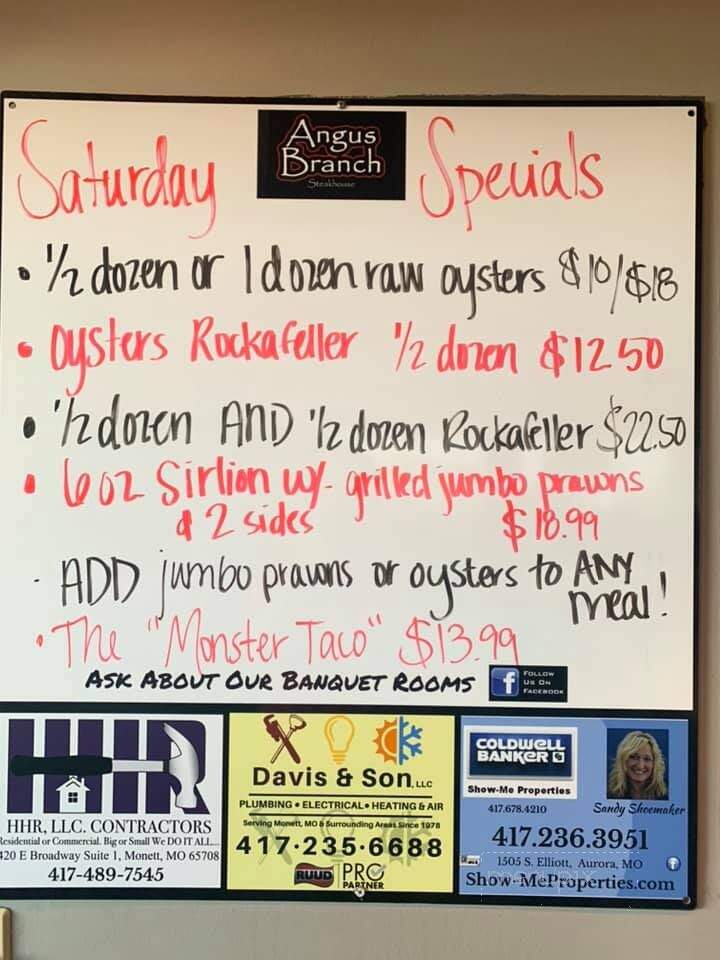 Saturday Specials
Angus
Branch
Steakhouse
• 1/2 dozen or 1 dozen raw oysters $10/$18
• Oysters Rockafeller 1/2 dozen $12.50
• 1/2 dozen AND 1/2 dozen Rockafeller $22.50
• 6 oz Sirlion w/ grilled jumbo prawns
& 2 sides $18.99
· ADD jumbo prawns or oysters to ANY
meal!
• The "Monster Taco" $13.99
ASK ABOUT OUR BANQUET ROOMS
f FOLLOW
US ON
FACEBOOK
HHR
HHR, LLC. CONTRACTORS
Residential or Commercial. Big or Small We DO IT ALL....
420 E Broadway Suite 1, Monett, MO 65708
417-489-7545
Davis & Son, LLC
PLUMBING • ELECTRICAL • HEATING & AIR
Serving Monett, MO & Surrounding Areas Since 1978
417·235·6688
RUUD PRO
PARTNER
COLDWELL
BANKER
Show-Me Properties
417.678.4210
Sandy Shoemaker
417.236.3951
1505 S. Elliott, Aurora, MO
Show-MeProperties.com